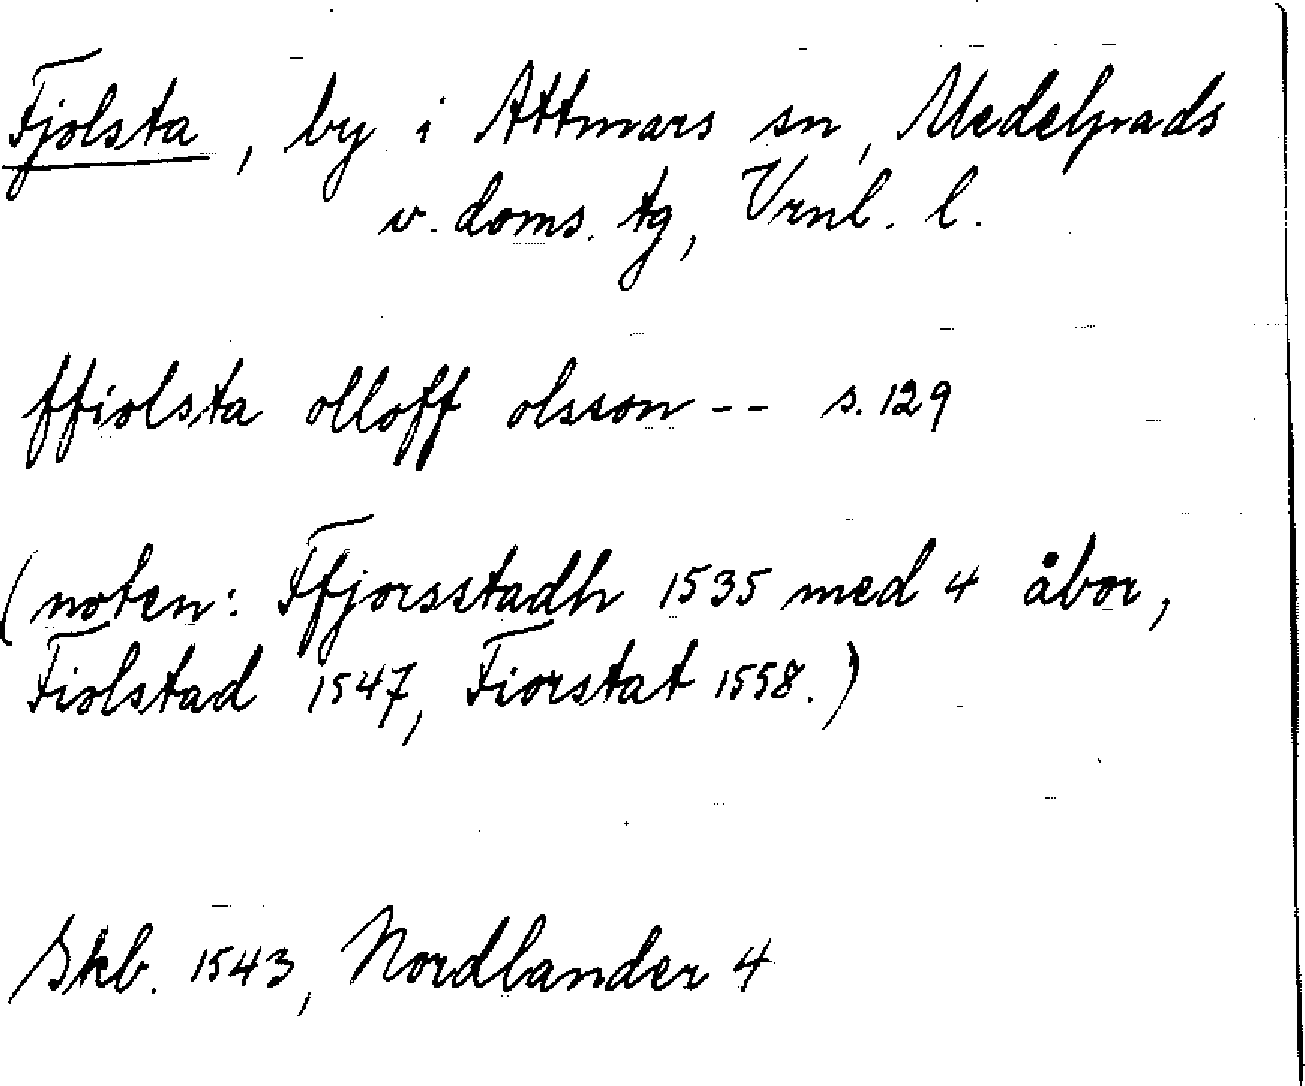 Fjolsta, by i Attmars sn, Medelpads
v. doms. tg, Vrnl. l.
ffiolsta olloff olsson -- s. 129
(noten: Ffjorsstadh 1535 med 4 åbor,
Fiolstad 1547, Fiorstat 1558.)
Skb. 1543, Nordlander 4